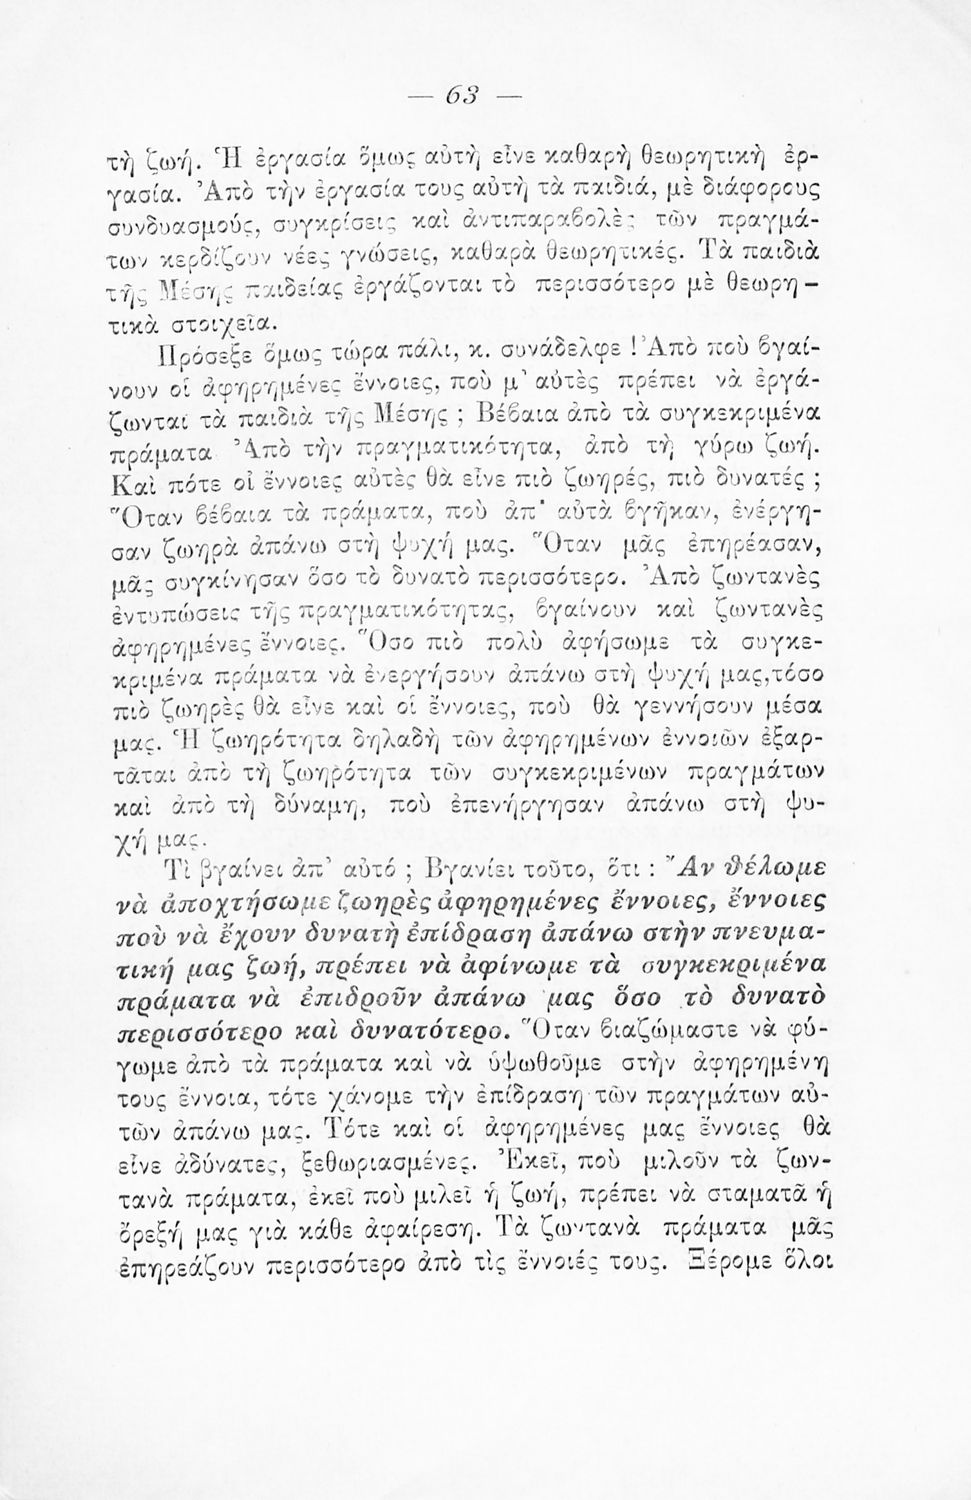 — 63 —
τὴ ζωή. Ἡ ἐργασία ὅμως αὐτὴ εἶνε καθαρὴ θεωρητικὴ ἐρ-
γασία. Ἀπὸ τὴν ἐργασία τους αὐτὴ τὰ παιδιά, μὲ διάφορους
συνδυασμούς, συγκρίσεις καὶ ἀντιπαραβολὲς τῶν πραγμά-
των κερδίζουν νέες γνώσεις, καθαρὰ θεωρητικές. Τὰ παιδιὰ
τῆς Μέσης παιδείας ἐργάζονται τὸ περισσότερο μὲ θεωρη-
τικὰ στοιχεῖα.
Πρόσεξε ὅμως τώρα πάλι, κ. συνάδελφε! Ἀπὸ ποὺ βγαί-
νουν οἱ ἀφηρημένες ἔννοιες, ποὺ μ' αὐτὲς πρέπει νὰ ἐργά-
ζωνται τὰ παιδιὰ τῆς Μέσης ; Βέβαια ἀπὸ τὰ συγκεκριμένα
πράματα Ἀπὸ τὴν πραγματικότητα, ἀπὸ τὴ γύρω ζωή.
Καὶ πότε οἱ ἔννοιες αὐτὲς θὰ εἶνε πιὸ ζωηρές, πιὸ δυνατές ;
Ὅταν βέβαια τὰ πράματα, ποὺ ἀπ' αὐτὰ βγῆκαν, ἐνέργη-
σαν ζωηρὰ ἀπάνω στὴ ψυχή μας. Ὅταν μᾶς ἐπηρέασαν,
μᾶς συγκίνησαν ὅσο τὸ δυνατὸ περισσότερο. Ἀπὸ ζωντανὲς
ἐντυπώσεις τῆς πραγματικότητας, βγαίνουν καὶ ζωντανὲς
ἀφηρημένες ἔννοιες. Ὅσο πιὸ πολὺ ἀφήσωμε τὰ συγκε-
κριμένα πράματα νὰ ἐνεργήσουν ἀπάνω στὴ ψυχή μας,τόσο
πιὸ ζωηρὲς θὰ εἶνε καὶ οἱ ἔννοιες, ποὺ θὰ γεννήσουν μέσα
μας. Ἡ ζωηρότητα δηλαδὴ τῶν ἀφηρημένων ἐννοιῶν ἐξαρ-
τᾶται ἀπὸ τὴ ζωηρότητα τῶν συγκεκριμένων πραγμάτων
καὶ ἀπὸ τὴ δύναμη, ποὺ ἐπενήργησαν ἀπάνω στὴ ψυ-
χή μας.
Τὶ βγαίνει ἀπ' αὐτό ; Βγανίει τοῦτο, ὅτι : Ἂν θέλωμε
νὰ ἀποχτήσωμε ζωηρὲς ἀφηρημένες ἔννοιες, ἔννοιες
ποὺ νὰ ἔχουν δυνατὴ ἐπίδραση ἀπάνω στὴν πνευμα-
τική μας ζωή, πρέπει νὰ ἀφίνωμε τὰ συγκεκριμένα
πράματα νὰ ἐπιδροῦν ἀπάνω μας ὅσο τὸ δυνατὸ
περισσότερο καὶ δυνατότερο. Ὅταν βιαζώμαστε νὰ φύ-
γωμε ἀπὸ τὰ πράματα καὶ νὰ ὑψωθοῦμε στὴν ἀφηρημένη
τους ἔννοια, τότε χάνομε τὴν ἐπίδραση τῶν πραγμάτων αὐ-
τῶν ἀπάνω μας. Τότε καὶ οἱ ἀφηρημένες μας ἔννοιες θὰ
εἶνε ἀδύνατες, ξεθωριασμένες. Ἐκεῖ, ποὺ μιλοῦν τὰ ζων-
τανὰ πράματα, ἐκεῖ ποὺ μιλεῖ ἡ ζωή, πρέπει νὰ σταματᾶ ἡ
ὄρεξή μας γιὰ κάθε ἀφαίρεση. Τὰ ζωντανὰ πράματα μᾶς
ἐπηρεάζουν περισσότερο ἀπὸ τὶς ἔννοιές τους. Ξέρομε ὅλοι